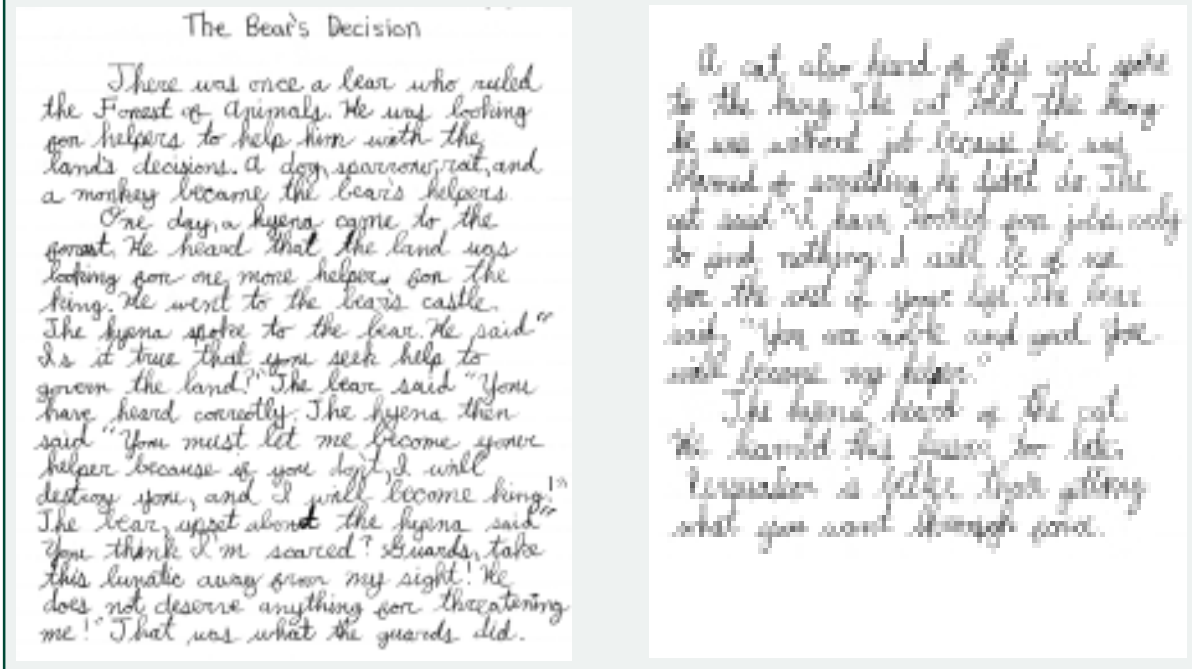 The Bear's Decision
There was once a bear who ruled
the Forrest of Animals. He was looking
for helpers to help him with the
land's decisions. A dog, sparrow, rat, and
a monkey became the bear's helpers.
One day, a hyena came to the
forrest. He heard that the land was
looking for one more helper for the
king. He went to the bear's castle.
The hyena spoke to the bear. He said "
Is it true that you seek help to
govern the land?" The bear said "You
have heard correctly. The hyena then
said "You must let me become your
helper because if you don't, I will
destroy you, and I will become king!"
The bear, upset about the hyena said"
You think I'm scared? Guards, take
this lunatic away from my sight! He
does not deserve anything for threatening
me!" That was what the guards did.
A cat also heard of this and spoke
to the king. The cat told the king
he was without job because he was
blamed of something he didn't do. The
cat said "I have looked for jobs, only
to find nothing. I will be of use
for the rest of your life." The bear
said, "You are noble and good. You
will become my helper."
The hyena heard of the cat.
He learned this lesson too late.
Persuasion is better than getting
what you want through force.